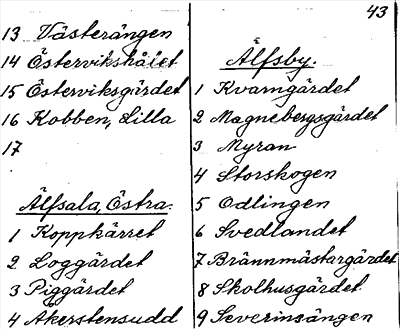 43
13 Västerängen
14 Östervikshålet
15 Österviksgärdet
16 Kobben, Lilla
17
Älfsala, Östra.
1 Koppkärret
2 Loggärdet
3 Piggärdet
4 Åkerstensudd
Älfsby.
1 Kvarngärdet
2 Magnebergsgärdet
3 Myran
4 Storskogen
5 Odlingen
6 Svedlandet
7 Brännmästargärdet
8 Skolhusgärdet
9 Severinsängen